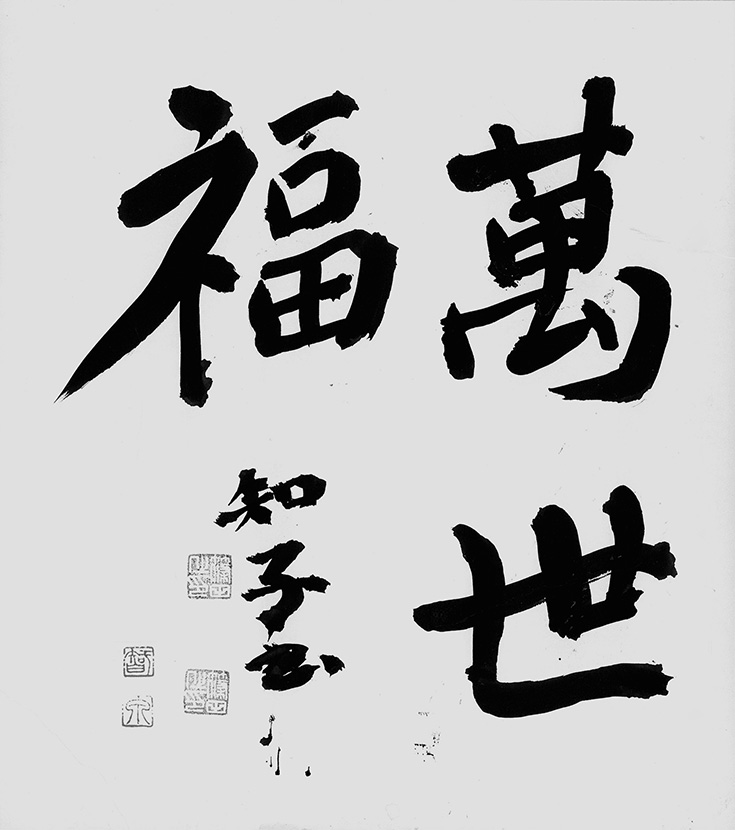 萬世
福
知子書